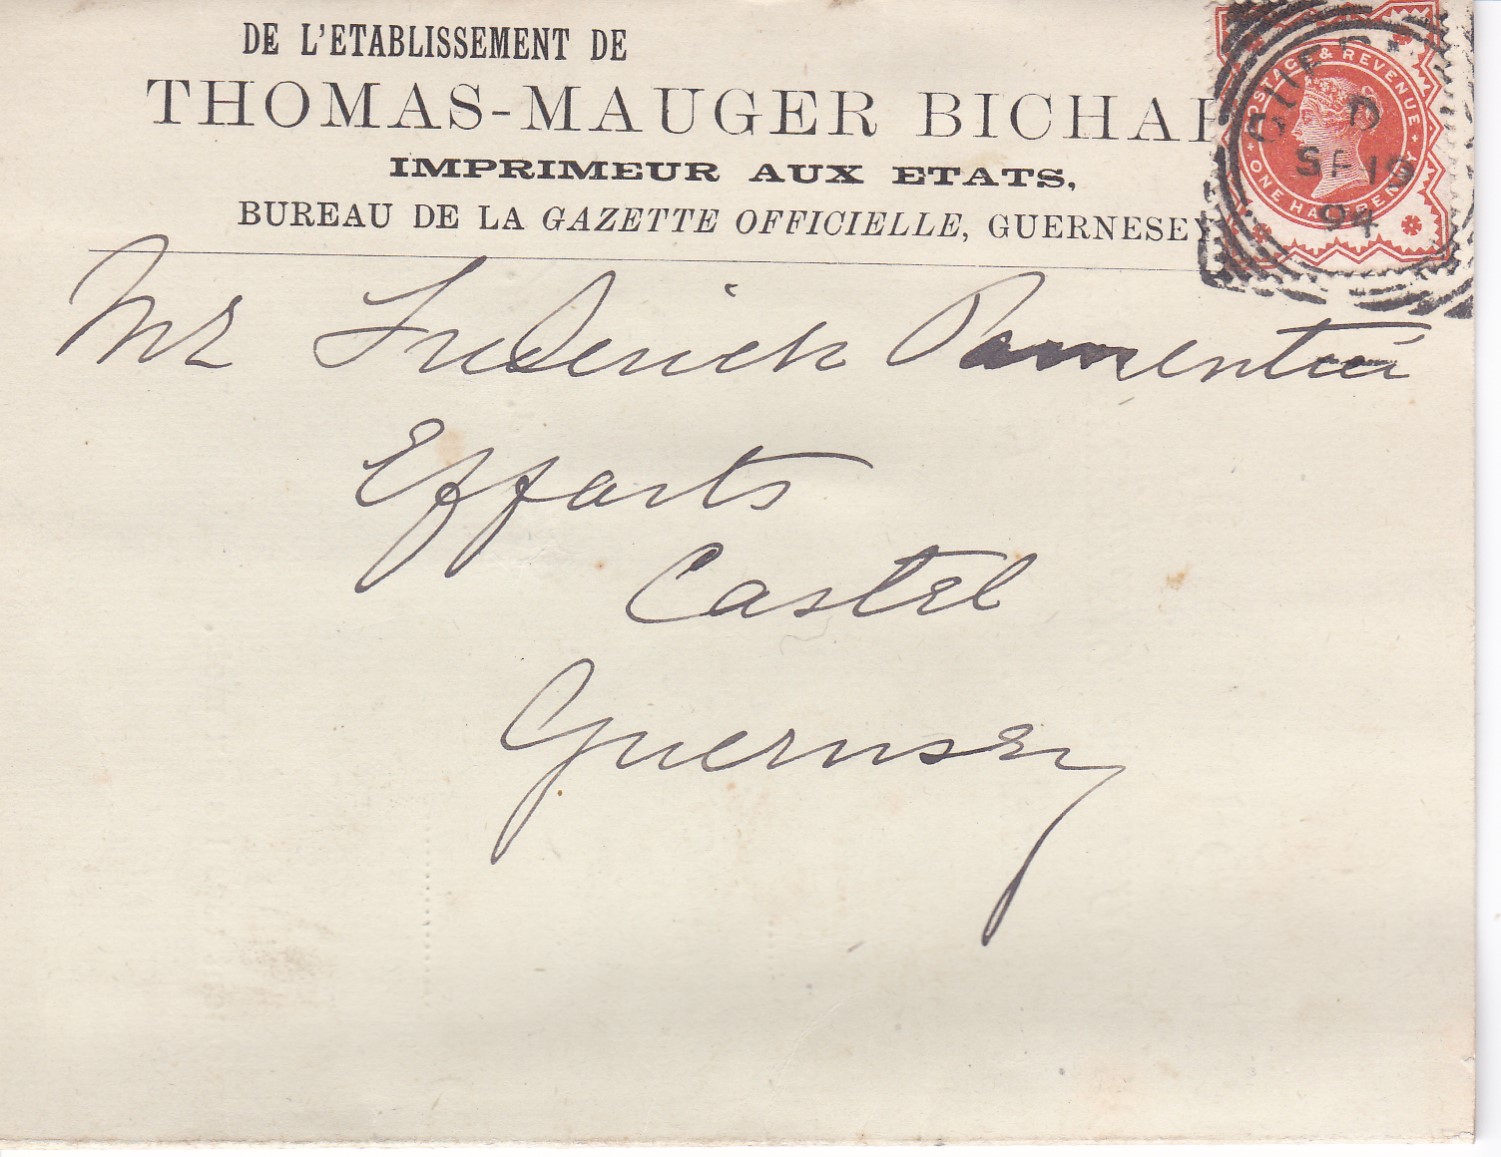 DE L'ETABLISSEMENT DE
THOMAS-MAUGER BICHA
IMPRIMEUR AUX ETATS,
BUREAU DE LA GAZETTE OFFICIELLE, GUERNESEY
POSTAGE & REVENUE
ONE HALFPENNY
GUER
D
SP 19
94
Mr Frederick
Efforts
Castel
Guernsey